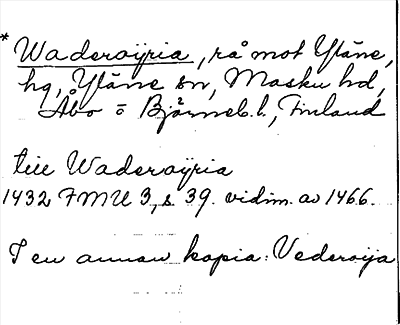 * Waderoÿria, rå mot Yläne,
hg, Yläne sn, Masku hd,
Åbo o Björneb. l., Finland
till Waderoÿria
1432 FMU 3, s 39. vidim. av 1466.
I en annan kopia: Vederoija